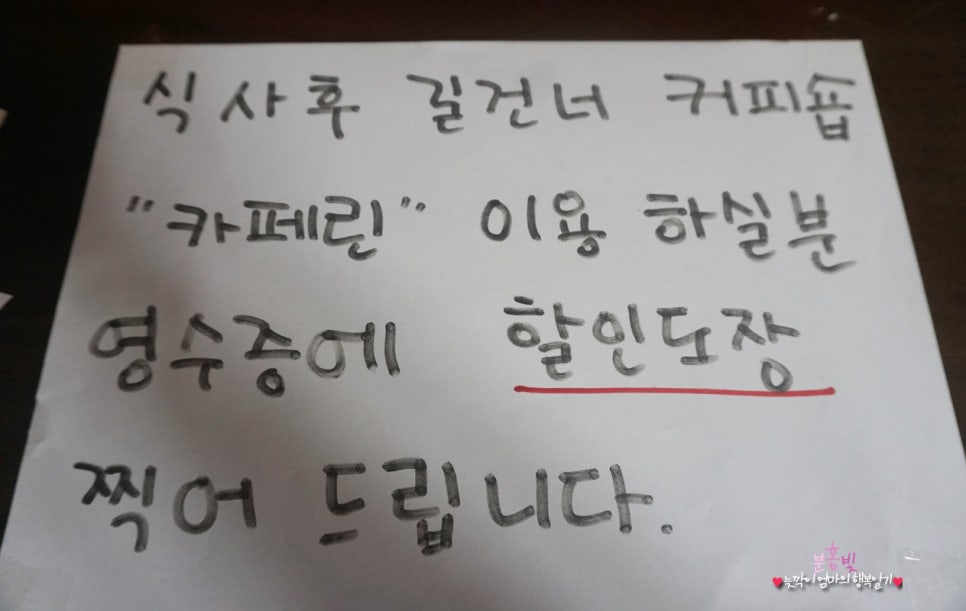 식사후 길건너 커피숍
"카페린" 이용 하실분
영수증에 할인도장
찍어 드립니다.
분홍빛
♥늦깍이 엄마의 행복일기♥